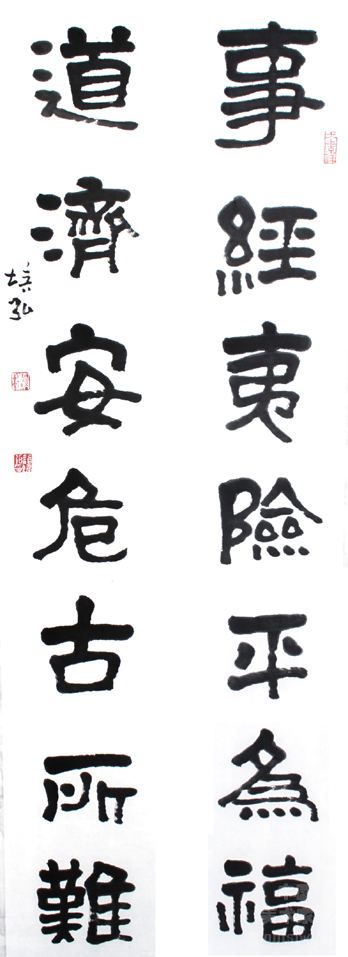 事經夷險平為福
道濟安危古所難
培弘